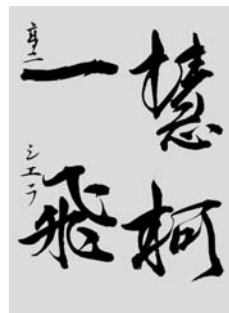 慧柯
一飛
高二
シエラ